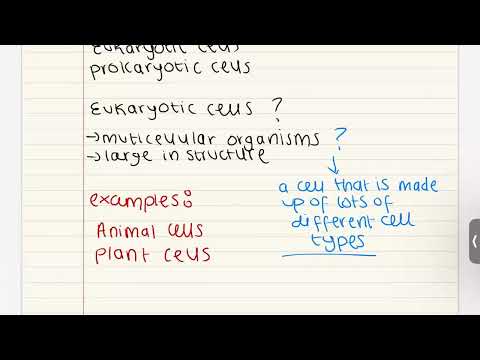 Eukaryotic cells
prokaryotic cells
Eukaryotic cells ?
→muticellular organisms ?
→large in structure
a cell that is made
up of lots of
different cell
types
examples:
Animal cells
plant cells